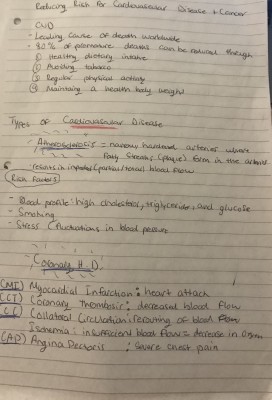 Reducing Risk for Cardiovascular Disease + Cancer
CVD
- Leading cause of death worldwide
- 80% of premature deaths can be reduced through
① Healthy dietary intake
② Avoiding tobacco
③ Regular physical activity
④ Maintaing a health body weight
Types of Cardiovascular Disease
- Atherosclerosis = narrow, hardened arteries where
Fatty Streaks (plaque) form in the arteries
results in impeded (partial/total) blood flow
Risk Factors
- Blood profile: high cholesterol, triglyceride, and glucose
- Smoking
- Stress (fluctuations in blood pressure
Coronary H.D.
(MI) Myocardial Infarction: heart attack
(CT) Coronary Thrombosis: decreased blood flow
(CC) Collateral Circulation: rerouting of blood flow
Ischemia: insufficient blood flow = decrease in Oxygen
(AP) Angina Pectoris : Severe chest pain